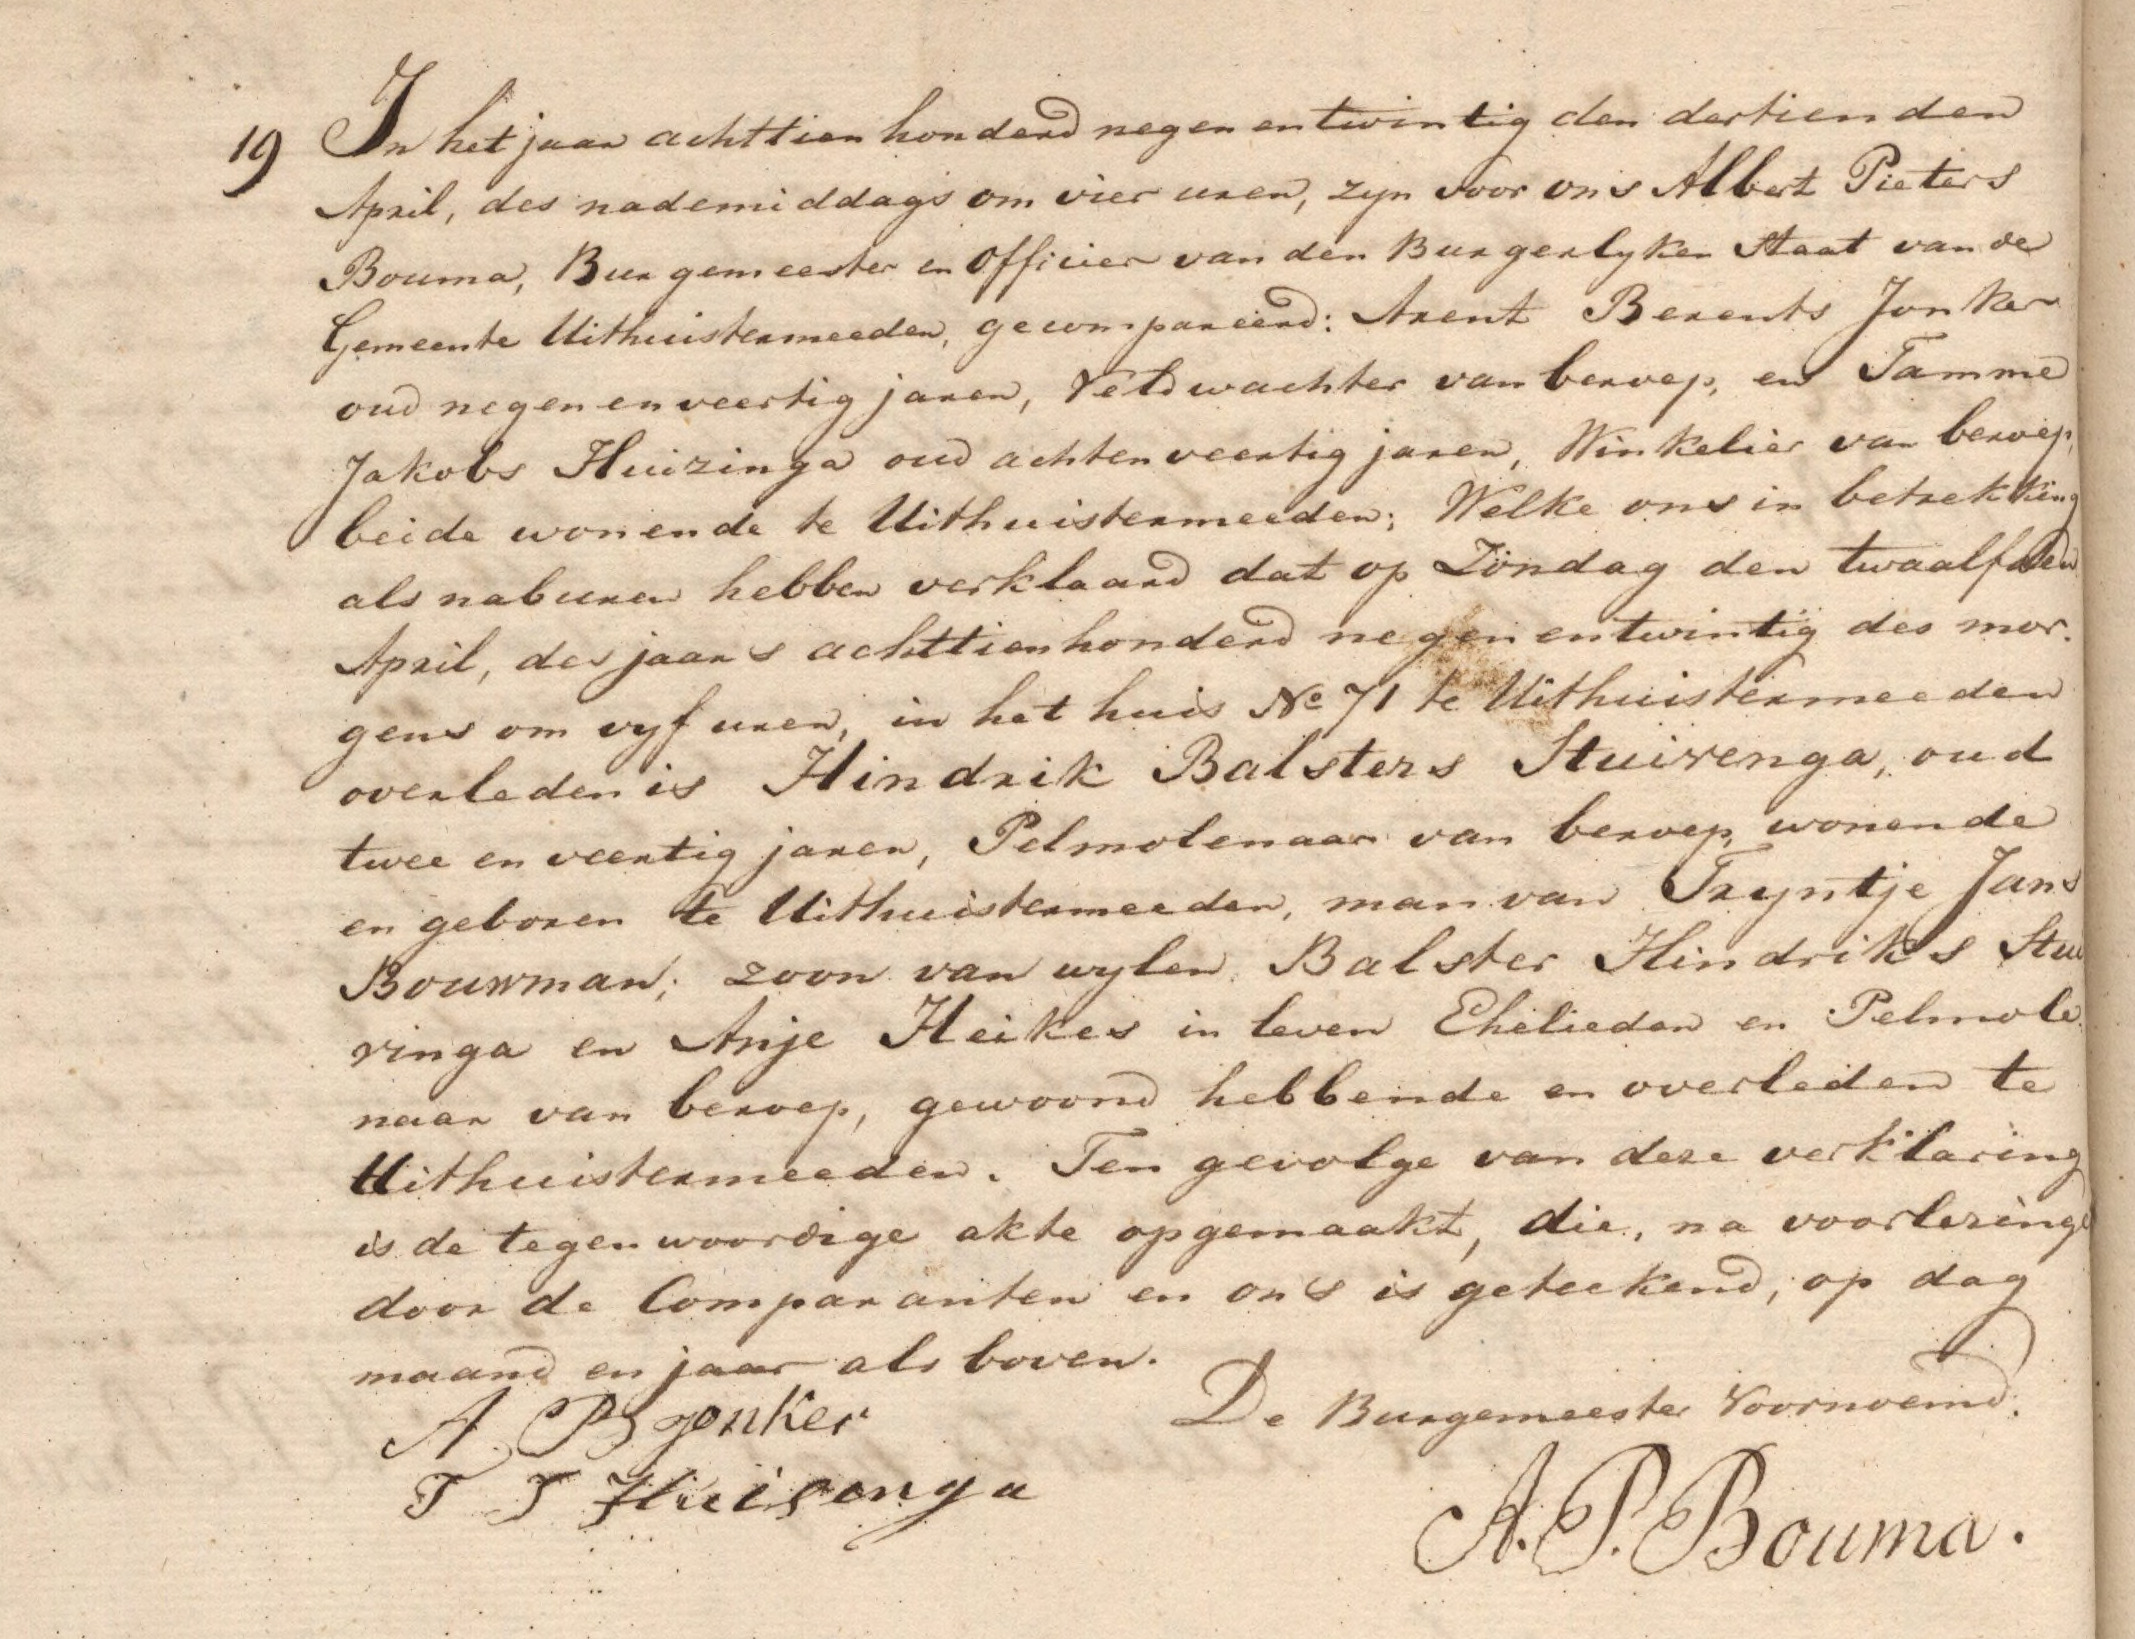 19 In het jaar achttien honderd negen en twintig den dertienden
April, des nademiddags om vier uren, zyn voor ons Albert Pieters
Bouma, Burgemeester en Officier van den Burgerlyken Staat van de
Gemeente Uithuistermeeden, gecompareerd: Arent Berents Jonker
oud negen en veertig jaren, Veldwachter van beroep, en Tamme
Jakobs Huizinga oud achtenveertig jaren, Winkelier van beroep,
beide wonende te Uithuistermeeden; Welke ons in betrekking
als naburen hebben verklaard dat op Zondag den twaalfden
April, des jaars achttienhonderd negen en twintig des mor-
gens om vyf uren, in het huis No 71 te Uithuistermeeden
overleden is Hindrik Balsters Stuivenga, oud
twee en veertig jaren, Pelmolenaar van beroep, wonende
en geboren te Uithuistermeeden, man van Tryntje Jans
Bouwman; zoon van wylen Balster Hindriks Stui
vinga en Anje Heikes in leven Ehelieden en Pelmole
naar van beroep, gewoond hebbende en overleden te
Uithuistermeeden. Ten gevolge van deze verklaring
is de tegenwoordige akte opgemaakt, die, na voorlezing
door de Comparanten en ons is geteekend, op dag
maand en jaar als boven.
A B Jonker De Burgemeester Voornoemd.
T J Huisenga
A. P. Bouma.